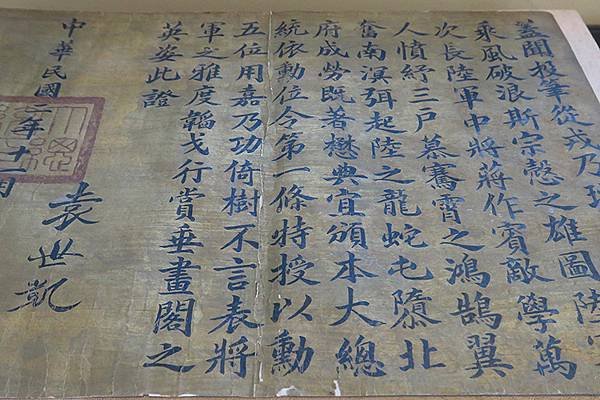 蓋聞投筆從戎乃班
乘風破浪斯宗慤之雄圖陸軍
次長陸軍中將蔣作賓敵學萬
人憤紓三戶慕騫霄之鴻鵠翼
奮南溟弭起陸之龍蛇屯隳北
府成勞既著懋典宜頒本大總
統依勳位令第一條特授以勳
五位用嘉乃功倚樹不言表將
軍之雅度韜戈行賞垂畫閣之
英姿此證
袁世凱
中華民國二年十一月